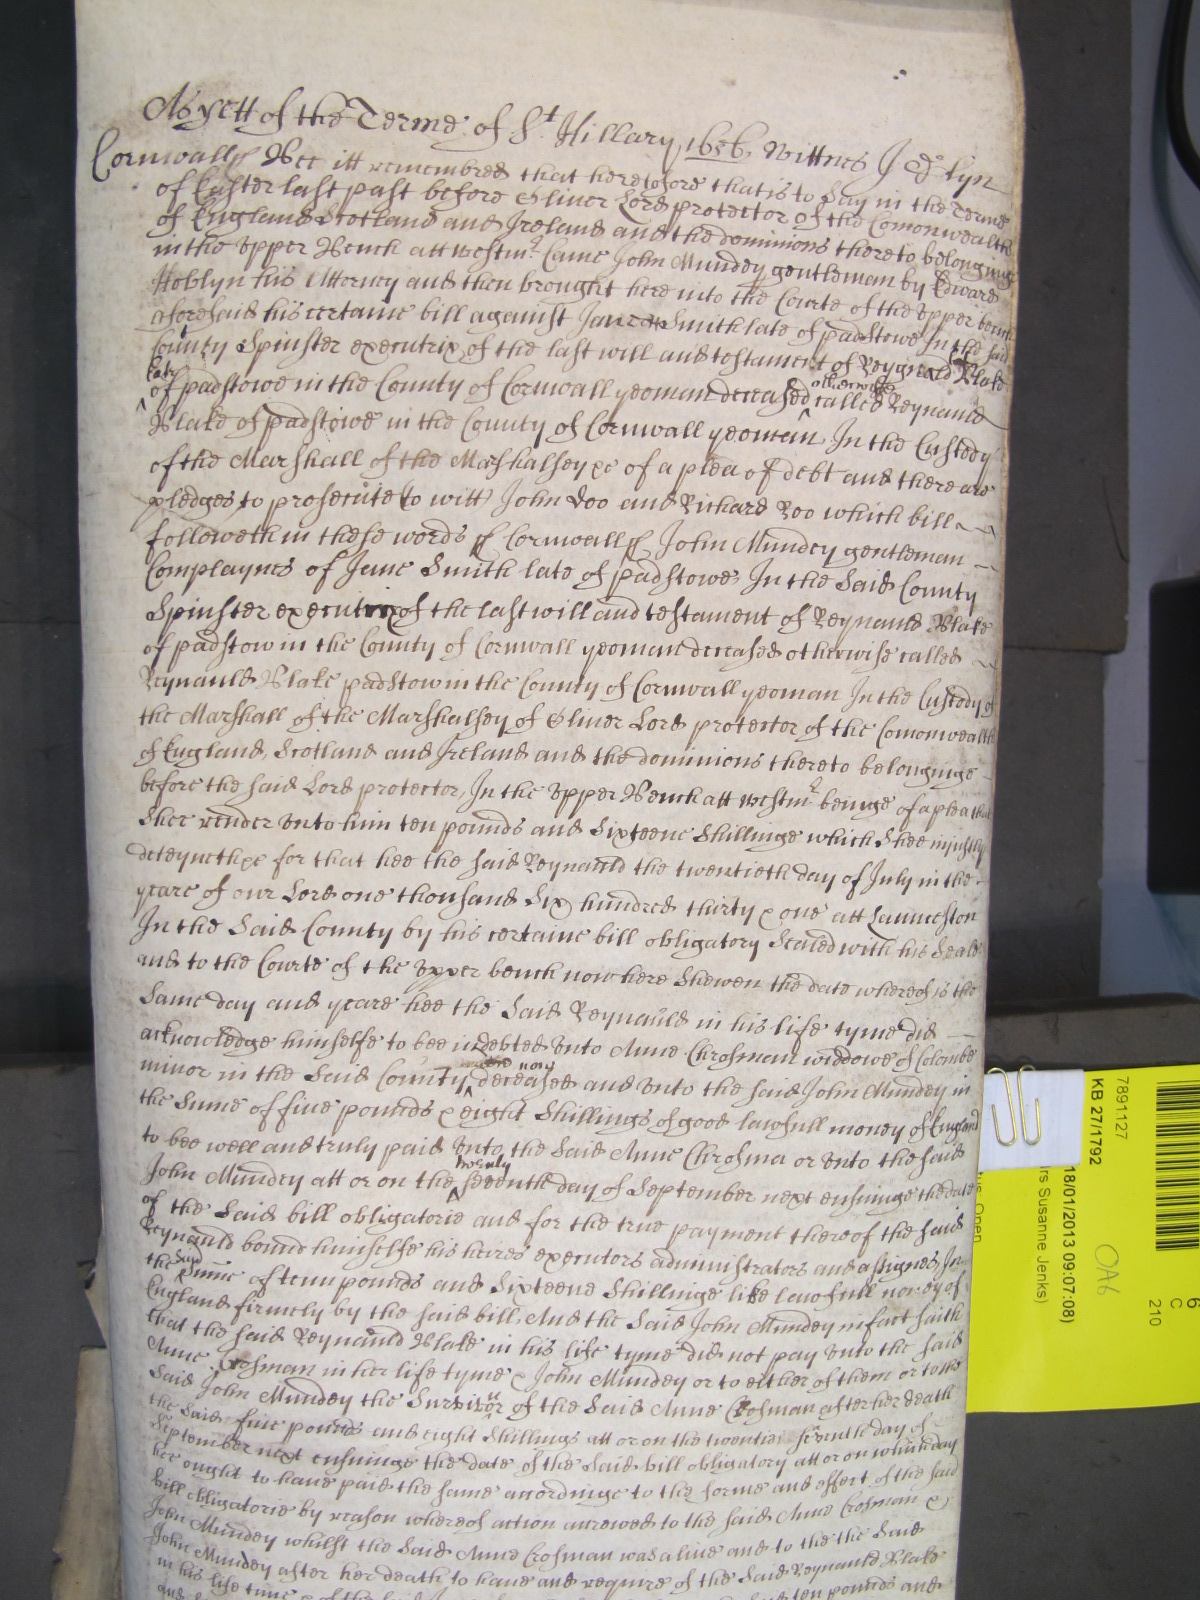 As yett of the Terme of St. Hillary 1656. Wittnes J
Cornwall ss Bee itt remembred that heretofore that is to Say in the Terme
of Easter last past before Oliver Lord protector of the Comonwealth
of England Scotland and Ireland and the dominions thereto belonginge
in the Upper Bench att Westmr. Came John Mundey gentleman by Edward
Hoblyn his Atterney and then brought here into the Courte of the Upper bench
aforesaid his certaine bill against Jane Smith late of padstowe In the said
County Spinster executrix of the last will and testament of Reygnald Blake
late
of padstowe in the County of Cornwall yeoman deceased otherwise called Reynauld
Blake of padstowe in the County of Cornwall yeoman In the Custody
of the Marshall of the Marshalsey &c of a plea of debt and there are
pledges to prosecute to witt John Doo and Richard Roo which bill
followeth in these words ss Cornwall ss John Mundey gentleman
Complaynes of Jane Smith late of padstowe In the Said County
Spinster executrix of the last will and testament of Reynauld Blake
of padstow in the County of Cornwall yeoman deceased otherwise called
Reynauld Blake padstow in the County of Cornwall yeoman In the Custody of
the Marshall of the Marshalsey of Oliver Lord protector of the Comonwealth
of England, Scotland and Ireland and the dominions thereto belonginge
before the said Lord protector, In the Upper Bench att Westmr. beinge of a plea that
Shee render unto him ten pounds and Sixteene Shillinge which Shee injustly
deteyneth &c for that hee the said Reynauld the twentieth day of July in the
yeare of our Lord one thousand Six hundred thirty & one att Launceston
In the Said County by his certaine bill obligatory Sealed with his Seale
and to the Courte of the Upper bench now here Shewen the date whereof is the
Same day and yeare hee the Said Reynauld in his life tyme did
acknowledge himselfe to bee indebted unto Anne Chrosman widdowe of Colombe
minor in the Said County now deceased and unto the said John Mundey in
the Sume of five pounds & eight Shillings of good lawfull money of England
to bee well and truly paid unto the Said Anne Chrosma or unto the said
John Mundey att or on the twenty seventh day of September next ensuinge the date
of the Said bill obligatorie and for the true payment thereof the said
Reynauld bound himselfe his heires executors administrators and assignes In
the said Sume of tenn pounds and Sixteene Shillinge like lawfull money of
England firmely by the said bill. And the Said John Mundey in fact saith
that the said Reynauld Blake in his life tyme did not pay unto the said
Anne Crosman in her life tyme & John Mundey or to either of them or to the
Said John Mundey the Survivor of the Said Anne Crosman after her death
the Said five pounds and eight Shillings att or on the twentie seventh day of
September next ensuinge the date of the Said bill obligatory att or on which day
hee ought to have paid the same accordinge to the forme and effect of the said
bill obligatorie by reason whereof action accrewed to the said Anne Crosman &
John Mundey whilst the Said Anne Crosman was alive and to the the Said
John Mundey after her death to have and require of the Said Reynauld Blake
in his life time ten pounds and
7891127
KB 27/1792
18/01/2013 09:07:08)
rs Susanne Jenks)
Open
OA6
6
C
210